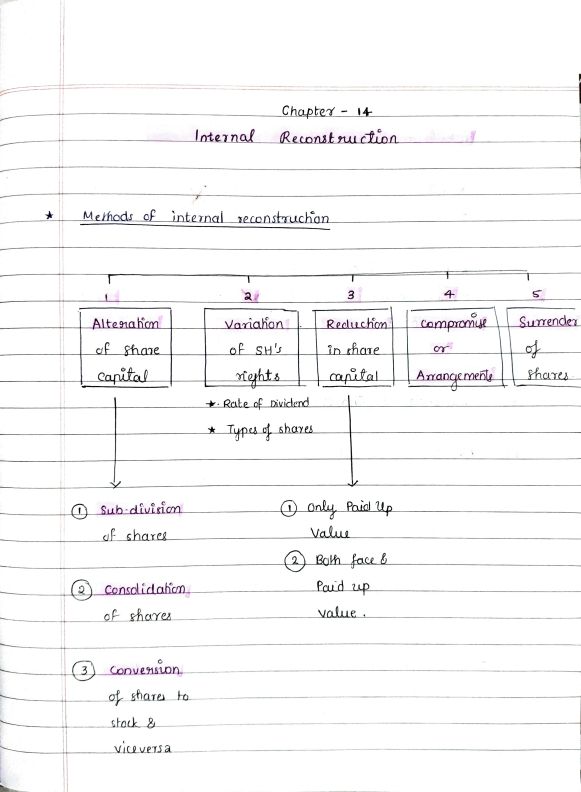 Chapter - 14
Internal Reconstruction
★ Methods of internal reconstruction
1 2 3 4 5
Alteration of share capital
Variation of SH's rights
★ Rate of Dividend
★ Types of shares
Reduction in share capital
Compromise or Arrangements
Surrender of shares
① Sub-division
of shares
② Consolidation
of shares
③ Conversion
of shares to
stock &
viceversa
① Only Paid Up
Value
② Both face &
Paid up
value.